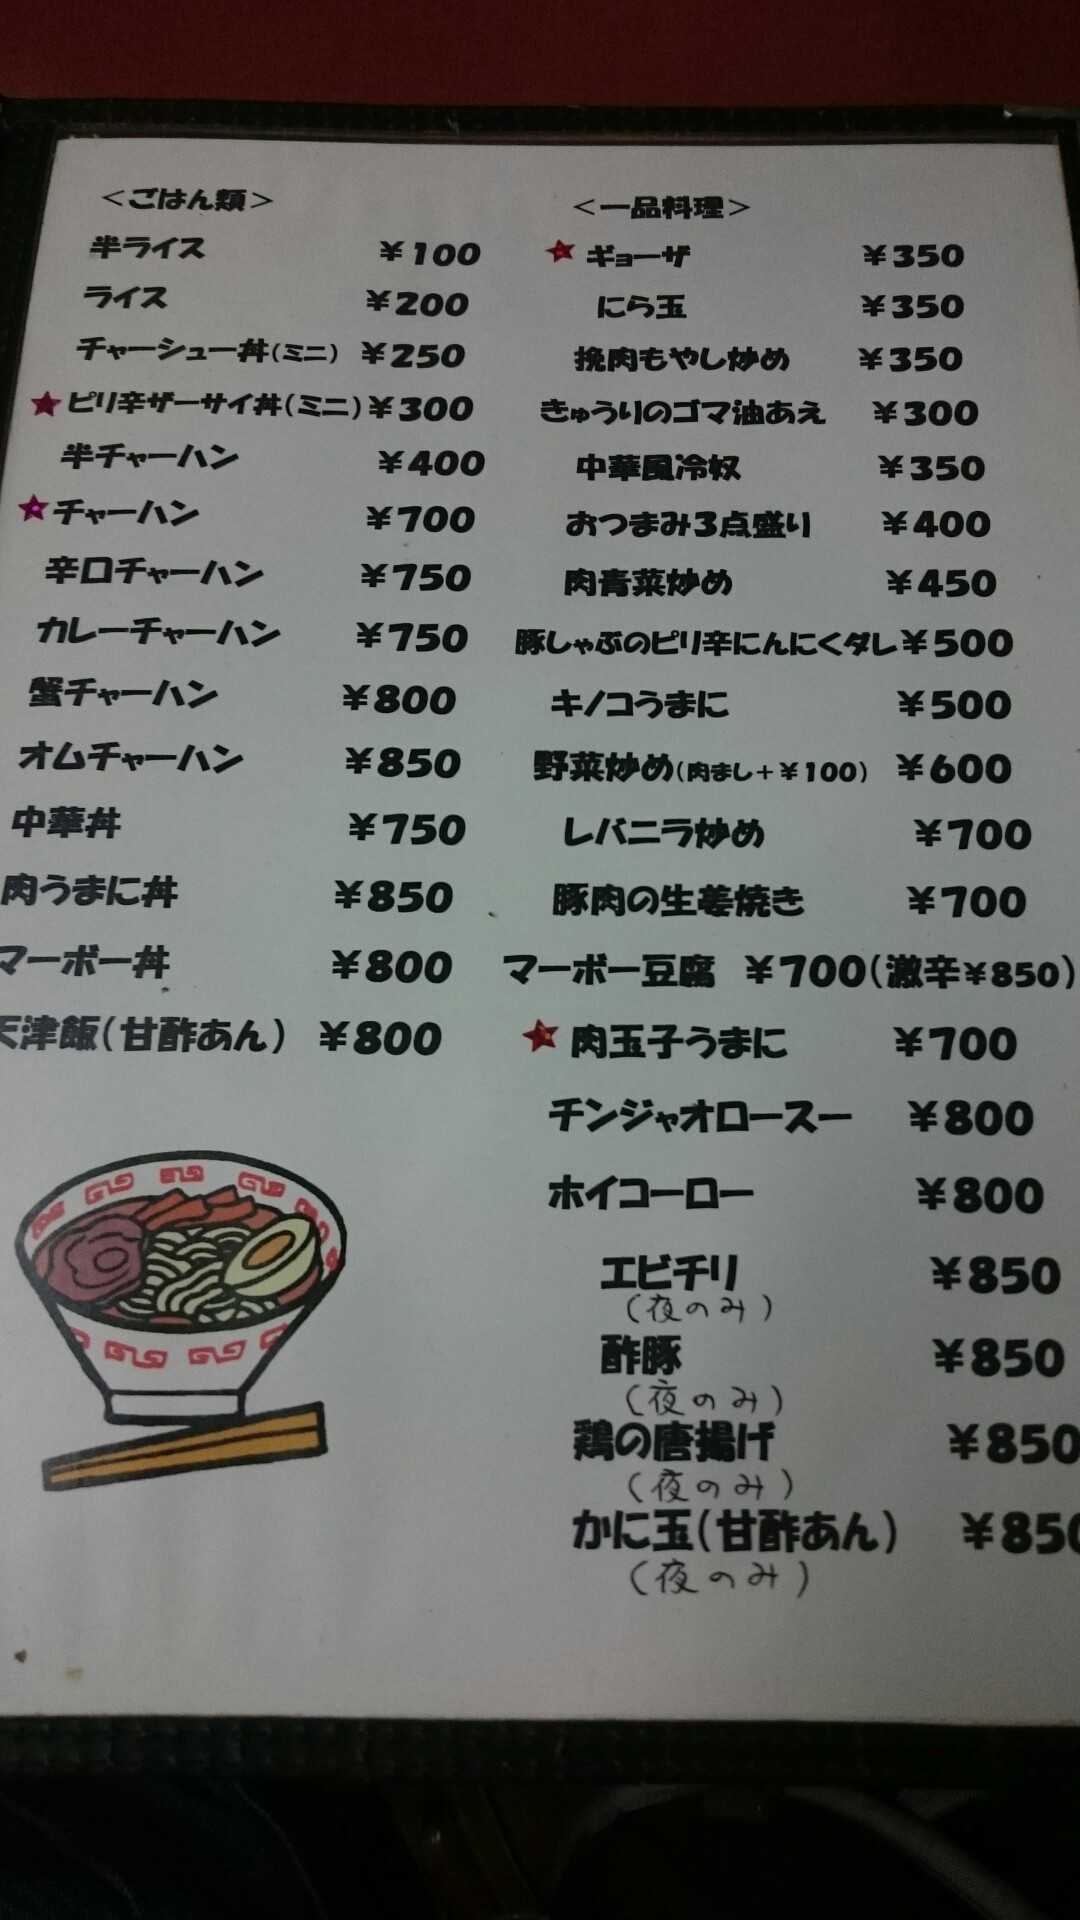 ＜ごはん類＞
半ライス ¥100
ライス ¥200
チャーシュー丼(ミニ) ¥250
★ピリ辛ザーサイ丼(ミニ) ¥300
半チャーハン ¥400
★チャーハン ¥700
辛口チャーハン ¥750
カレーチャーハン ¥750
蟹チャーハン ¥800
オムチャーハン ¥850
中華丼 ¥750
肉うまに丼 ¥850
マーボー丼 ¥800
天津飯(甘酢あん) ¥800
＜一品料理＞
★ギョーザ ¥350
にら玉 ¥350
挽肉もやし炒め ¥350
きゅうりのゴマ油あえ ¥300
中華風冷奴 ¥350
おつまみ3点盛り ¥400
肉青菜炒め ¥450
豚しゃぶのピリ辛にんにくダレ ¥500
キノコうまに ¥500
野菜炒め(肉まし+¥100) ¥600
レバニラ炒め ¥700
豚肉の生姜焼き ¥700
マーボー豆腐 ¥700(激辛¥850)
★肉玉子うまに ¥700
チンジャオロースー ¥800
ホイコーロー ¥800
エビチリ ¥850
(夜のみ)
酢豚 ¥850
(夜のみ)
鶏の唐揚げ ¥850
(夜のみ)
かに玉(甘酢あん) ¥850
(夜のみ)